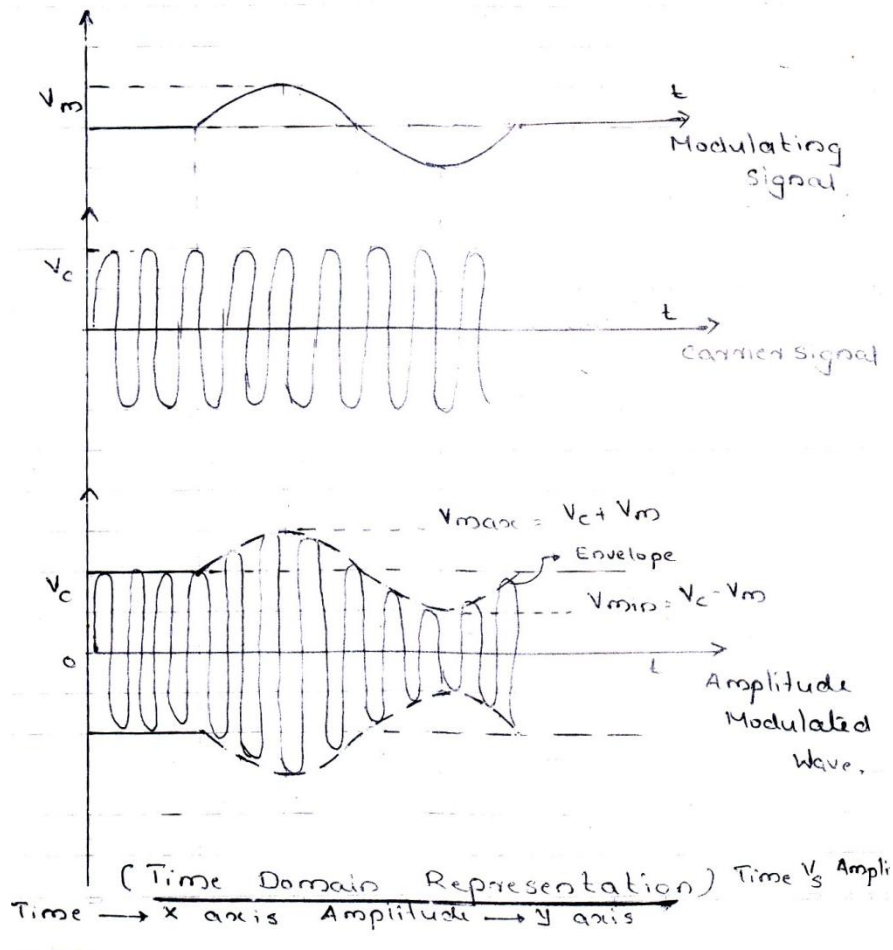 Vm
t
Modulating
Signal
Vc
t
Carrier Signal
Vmax = Vc + Vm
Envelope
Vc
Vmin = Vc - Vm
0
t
Amplitude
Modulated
Wave.
(Time Domain Representation) Time Vs Ampli
Time → x axis Amplitude → y axis